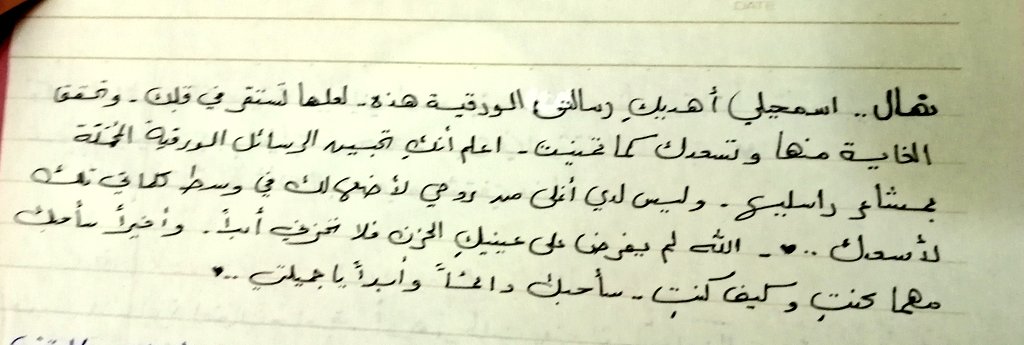 نهال .. اسمحيلي أهديكِ رسالتي الورقية هذه - لعلها تستقر في قلبك - وتحقق
الغاية منها وتسعدك كما تمنيت - اعلم أنكِ تحبين الرسائل الورقية المحمّلة
بمشاعر راسليها - وليس لدي أغلى من روحي لأضعها لك في وسط كلماتي تلك
لأسعدك ..♥ - الله لم يفرض على عينيكِ الحزن فلا تحزني أبداً . وأخيراً سأحبك
مهما كنتِ وكيف كنتِ - سأحبك دائماً وأبداً يا جميلتي ..♥